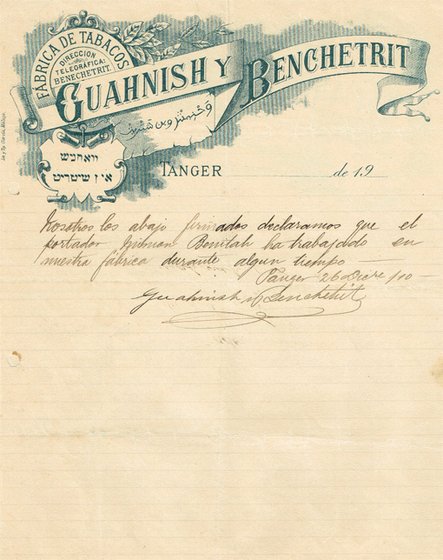 FÁBRICA DE TABACOS
DIRECCIÓN
TELEGRÁFICA:
BENECHETRIT.
GUAHNISH Y BENCHETRIT
וואהניש
אי״ן שיטרית
TANGER de 19
Nosotros los abajo firmados declaramos que el
portador Benitah ha trabajado en
nuestra fábrica durante algun tiempo —
Tanger 26
Guahnish y Benchetrit